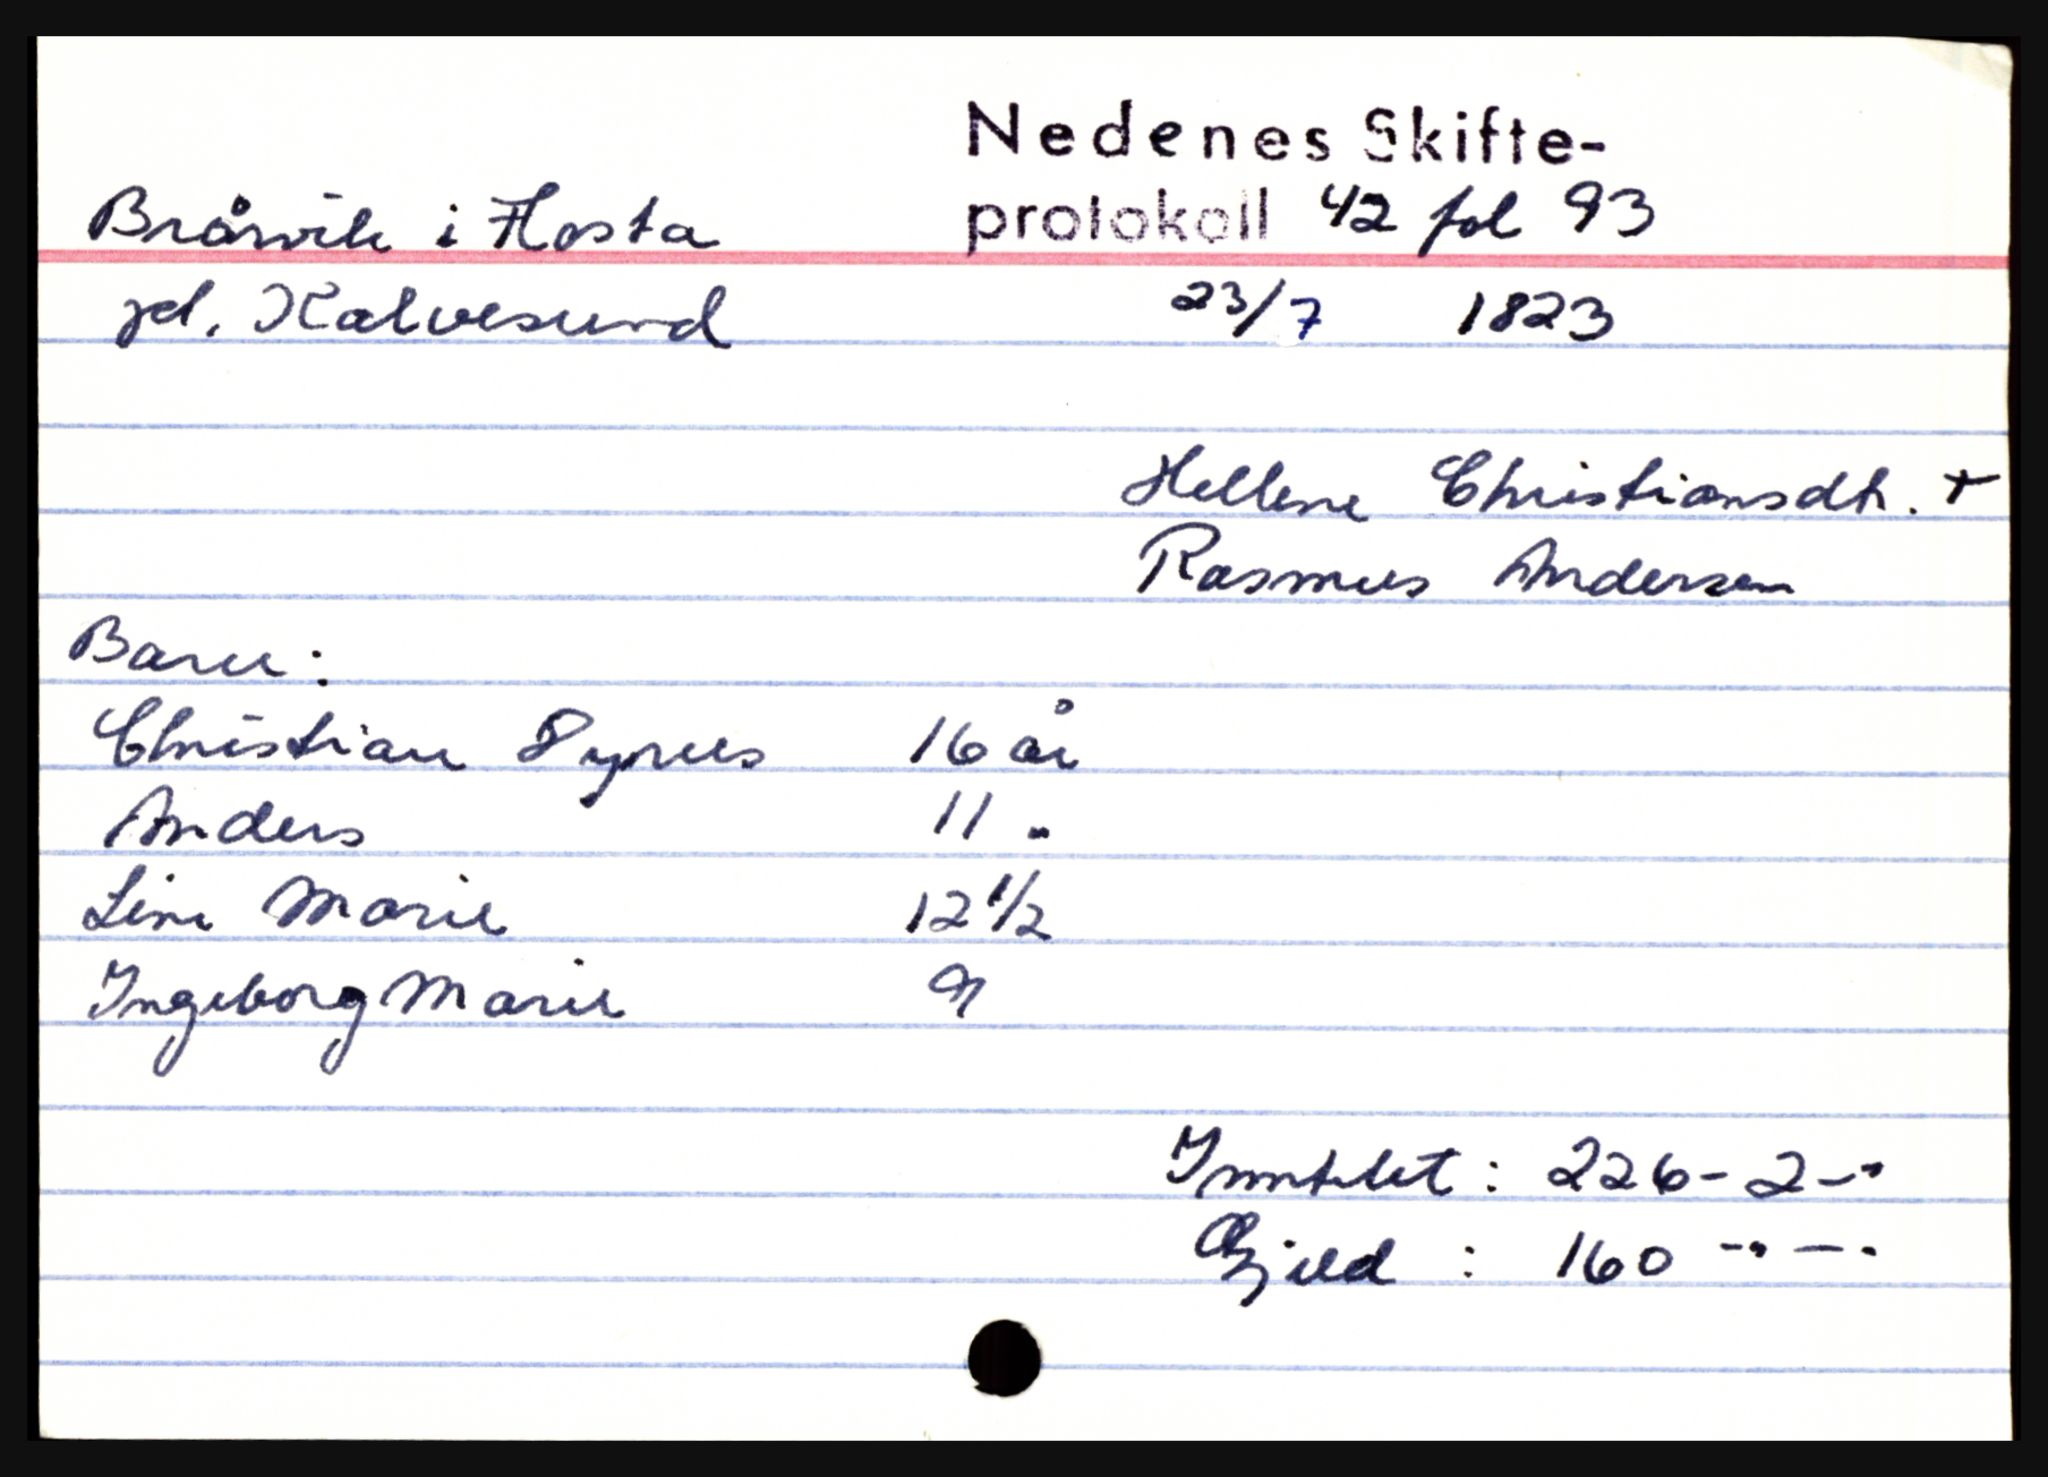 Nedenes Skifte-
Bråvik i Flosta protokoll 42 fol 93
pl. Kalvesund 23/7 1823
Hellene Christiansdtr. +
Rasmus Andersen
Barn:
Christian Pyrus 16 år
Anders 11 "
Line Marie 12 1/2
Ingeborg Marie 9
Inntekt: 226-2-"
Gjeld : 160 -"-"